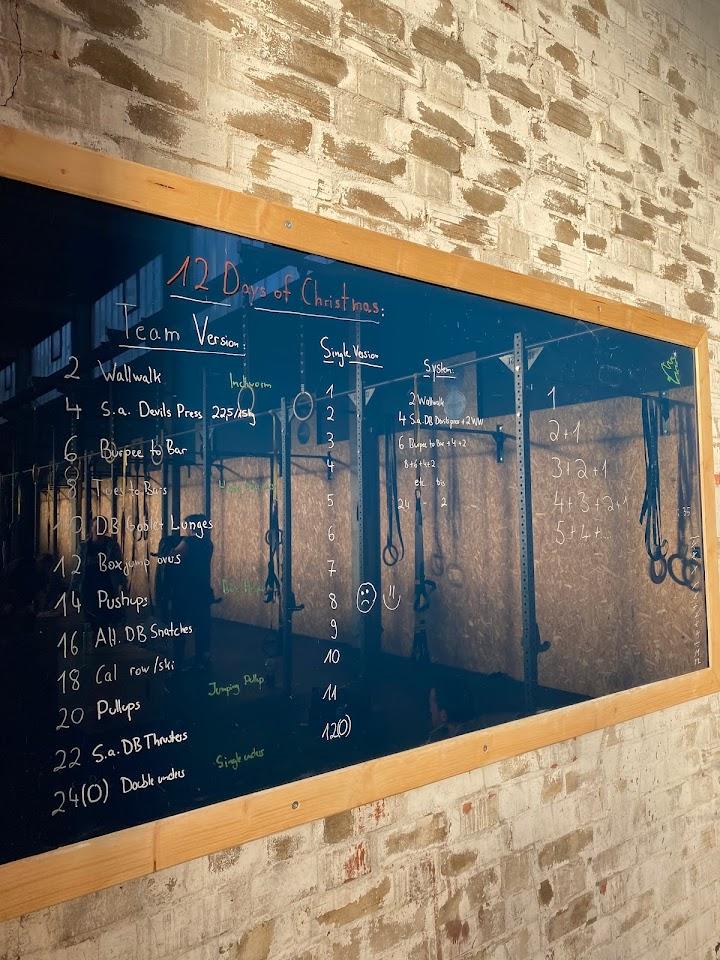 12 Days of Christmas:
Team Version
2 Wallwalk
Inchworm
4 S.a. Devils Press 22,5/15kg
6 Burpee to Bar
8 Toes to Bars
10 DB Goblet Lunges
12 Boxjump overs
14 Pushups
16 Alt. DB Snatches
18 Cal row/ski
Jumping Pullup
20 Pullups
22 S.a. DB Thrusters
Single unders
24(0) Double unders
Single Version
1
2
3
4
5
6
7
8
9
10
11
12(0)
System:
2 Wallwalk
4 S.a. DB Devilspress + 2WW
6 Burpee to Bar + 4+2
8+6+4+2
etc bis
24 - 2
1
2+1
3+2+1
4+3+2+1
5+4+...